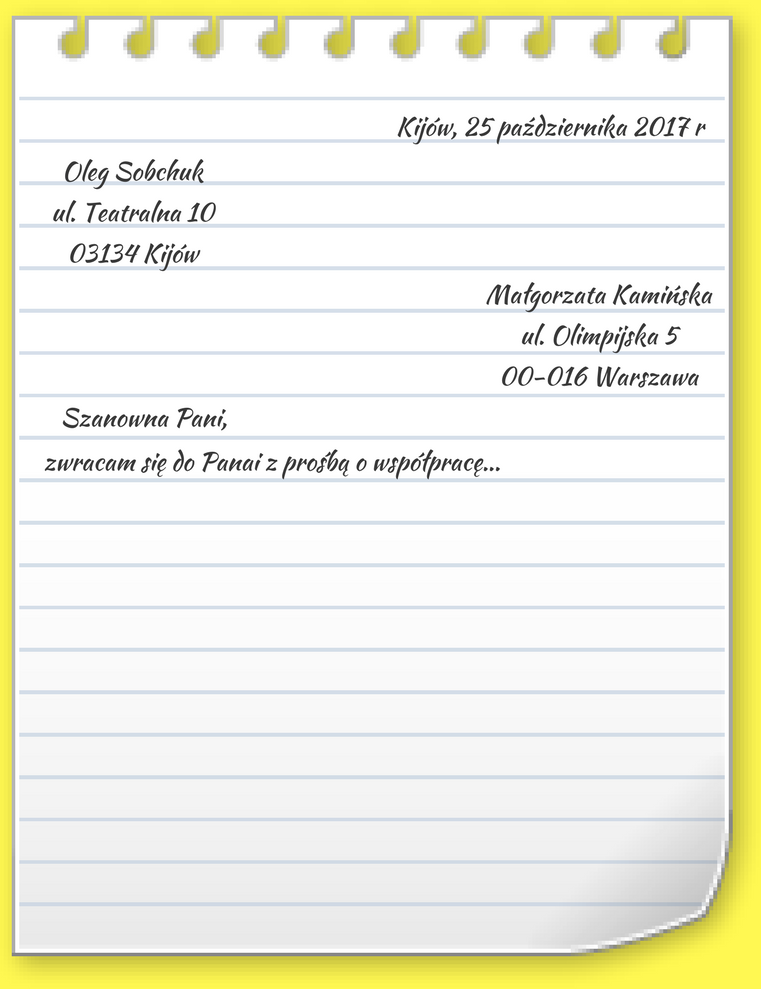 Kijów, 25 października 2017 r
Oleg Sobchuk
ul. Teatralna 10
03134 Kijów
Małgorzata Kamińska
ul. Olimpijska 5
00-016 Warszawa
Szanowna Pani,
zwracam się do Panai z prośbą o współpracę...